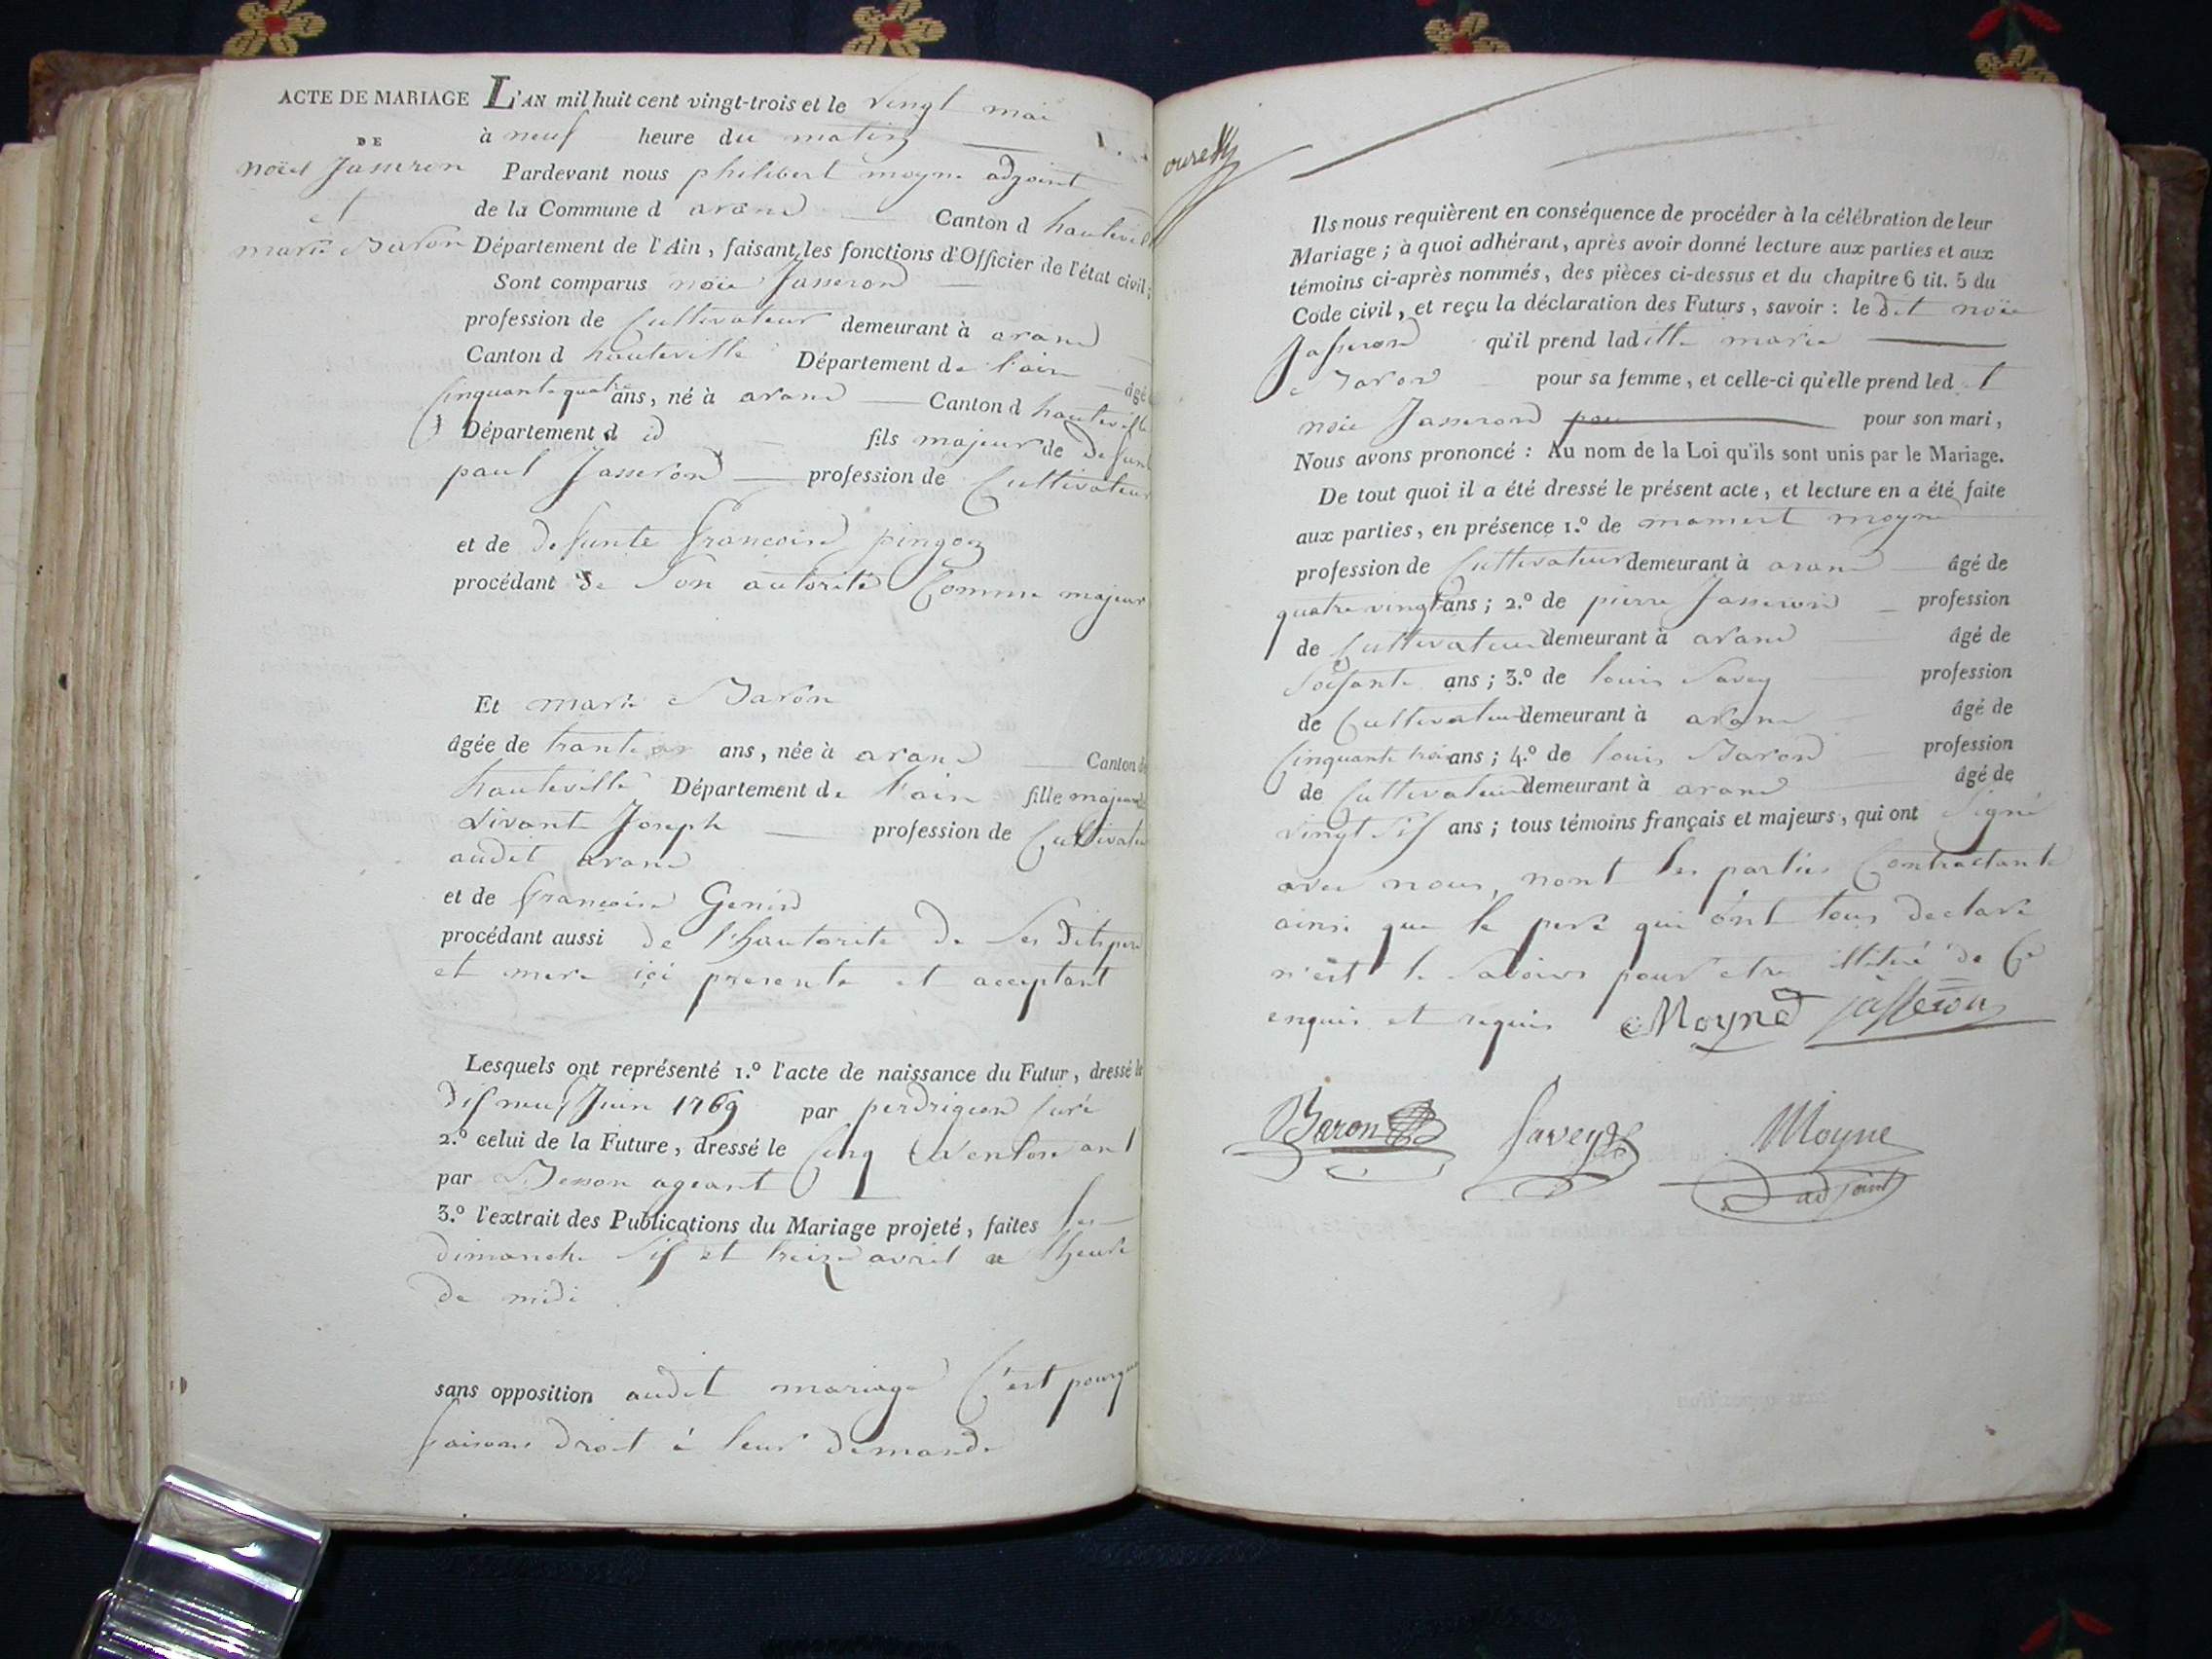 ACTE DE MARIAGE
DE
noël Jasseron
et
marie Baron
L'AN mil huit cent vingt-trois et le vingt mai
à neuf heure du matin
Pardevant nous philibert moyne adjoint
de la Commune d arand Canton d hauteville
Département de l'Ain, faisant les fonctions d'Officier de l'état civil;
Sont comparus noël Jasseron
profession de Cultivateur demeurant à arand
Canton d hauteville Département de l'ain âgé
Cinquante quatre ans, né à arand Canton d hauteville
Département d id fils majeur de defunt
paul Jasseron profession de Cultivateur
et de defunte françoise pingon
procédant de son autorité Comme majeur
Et marie Baron
âgée de trante ans, née à arand Canton d
hauteville Département de l'ain fille majeure
vivant Joseph profession de Cultivateur
audit arand
et de françoise Genin
procédant aussi de l'hautorité de ses dits pere
et mere ici presente et acceptant
Lesquels ont représenté 1.º l'acte de naissance du Futur, dressé le
dix neuf Juin 1769 par perdrigeon curé
2.º celui de la Future, dressé le cinq ventose an 1
par Besson ageant
3.º l'extrait des Publications du Mariage projeté, faites les
dimanche six et treize avril a lheure
de midi
sans opposition audit mariage C'est pourquoi
faisons droit à leur demande
Ils nous requièrent en conséquence de procéder à la célébration de leur
Mariage; à quoi adhérant, après avoir donné lecture aux parties et aux
témoins ci-après nommés, des pièces ci-dessus et du chapitre 6 tit. 5 du
Code civil, et reçu la déclaration des Futurs, savoir: le dit noël
Jasseron qu'il prend laditte marie
Baron pour sa femme, et celle-ci qu'elle prend led t
noël Jasseron pour son mari,
Nous avons prononcé: Au nom de la Loi qu'ils sont unis par le Mariage.
De tout quoi il a été dressé le présent acte, et lecture en a été faite
aux parties, en présence 1.º de mamert moyne
profession de Cultivateur demeurant à arand âgé de
quatre vingt ans; 2.º de pierre Jasseron profession
de Cultivateur demeurant à arand âgé de
soisante ans; 3.º de louis Savey profession
de Cultivateur demeurant à arand âgé de
Cinquante trois ans; 4.º de louis Baron profession
de Cultivateur demeurant à arand âgé de
vingt six ans; tous témoins français et majeurs, qui ont signé
avec nous, nont les parties Contractante
ainsi que le pere qui ont tous declaré
n'est le savoir pour etre illitéré de Ce
enquis et requis Moyne jasseron
Baron Savey Moyne
adjoint